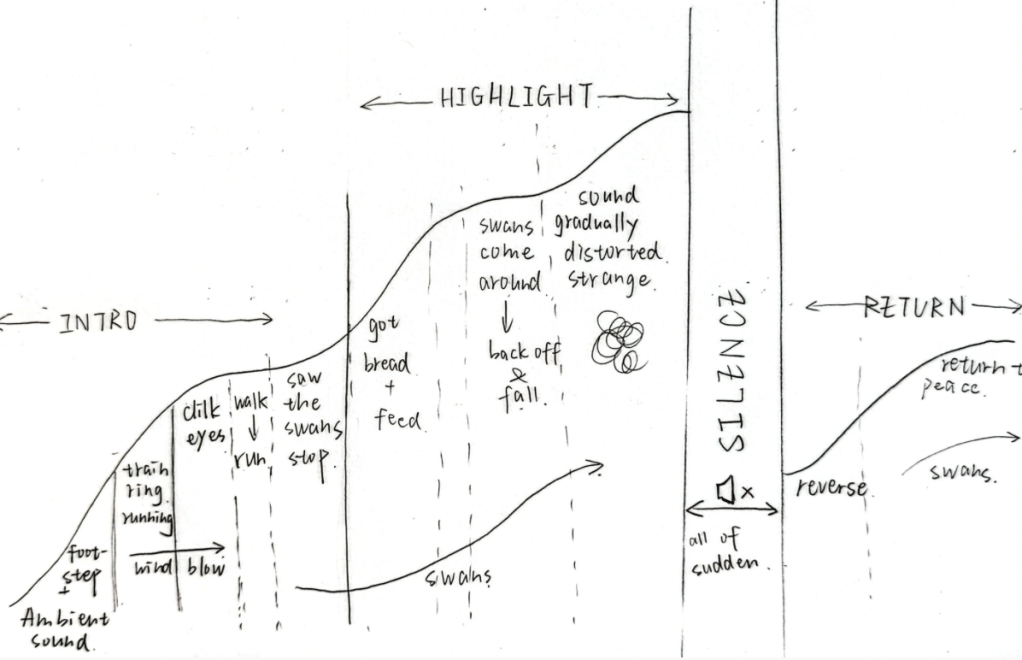 HIGHLIGHT
INTRO
RETURN
SILENCE
foot-
step
+
Ambient
sound.
train
ring.
running
wind blow
clik
eyes
walk
↓
run
saw
the
swans
stop.
got
bread
+
feed
swans
come
around
↓
back off
&
fall.
sound
gradually
distorted.
strange.
swans
x
all of
sudden.
reverse.
return t
peace.
swans.